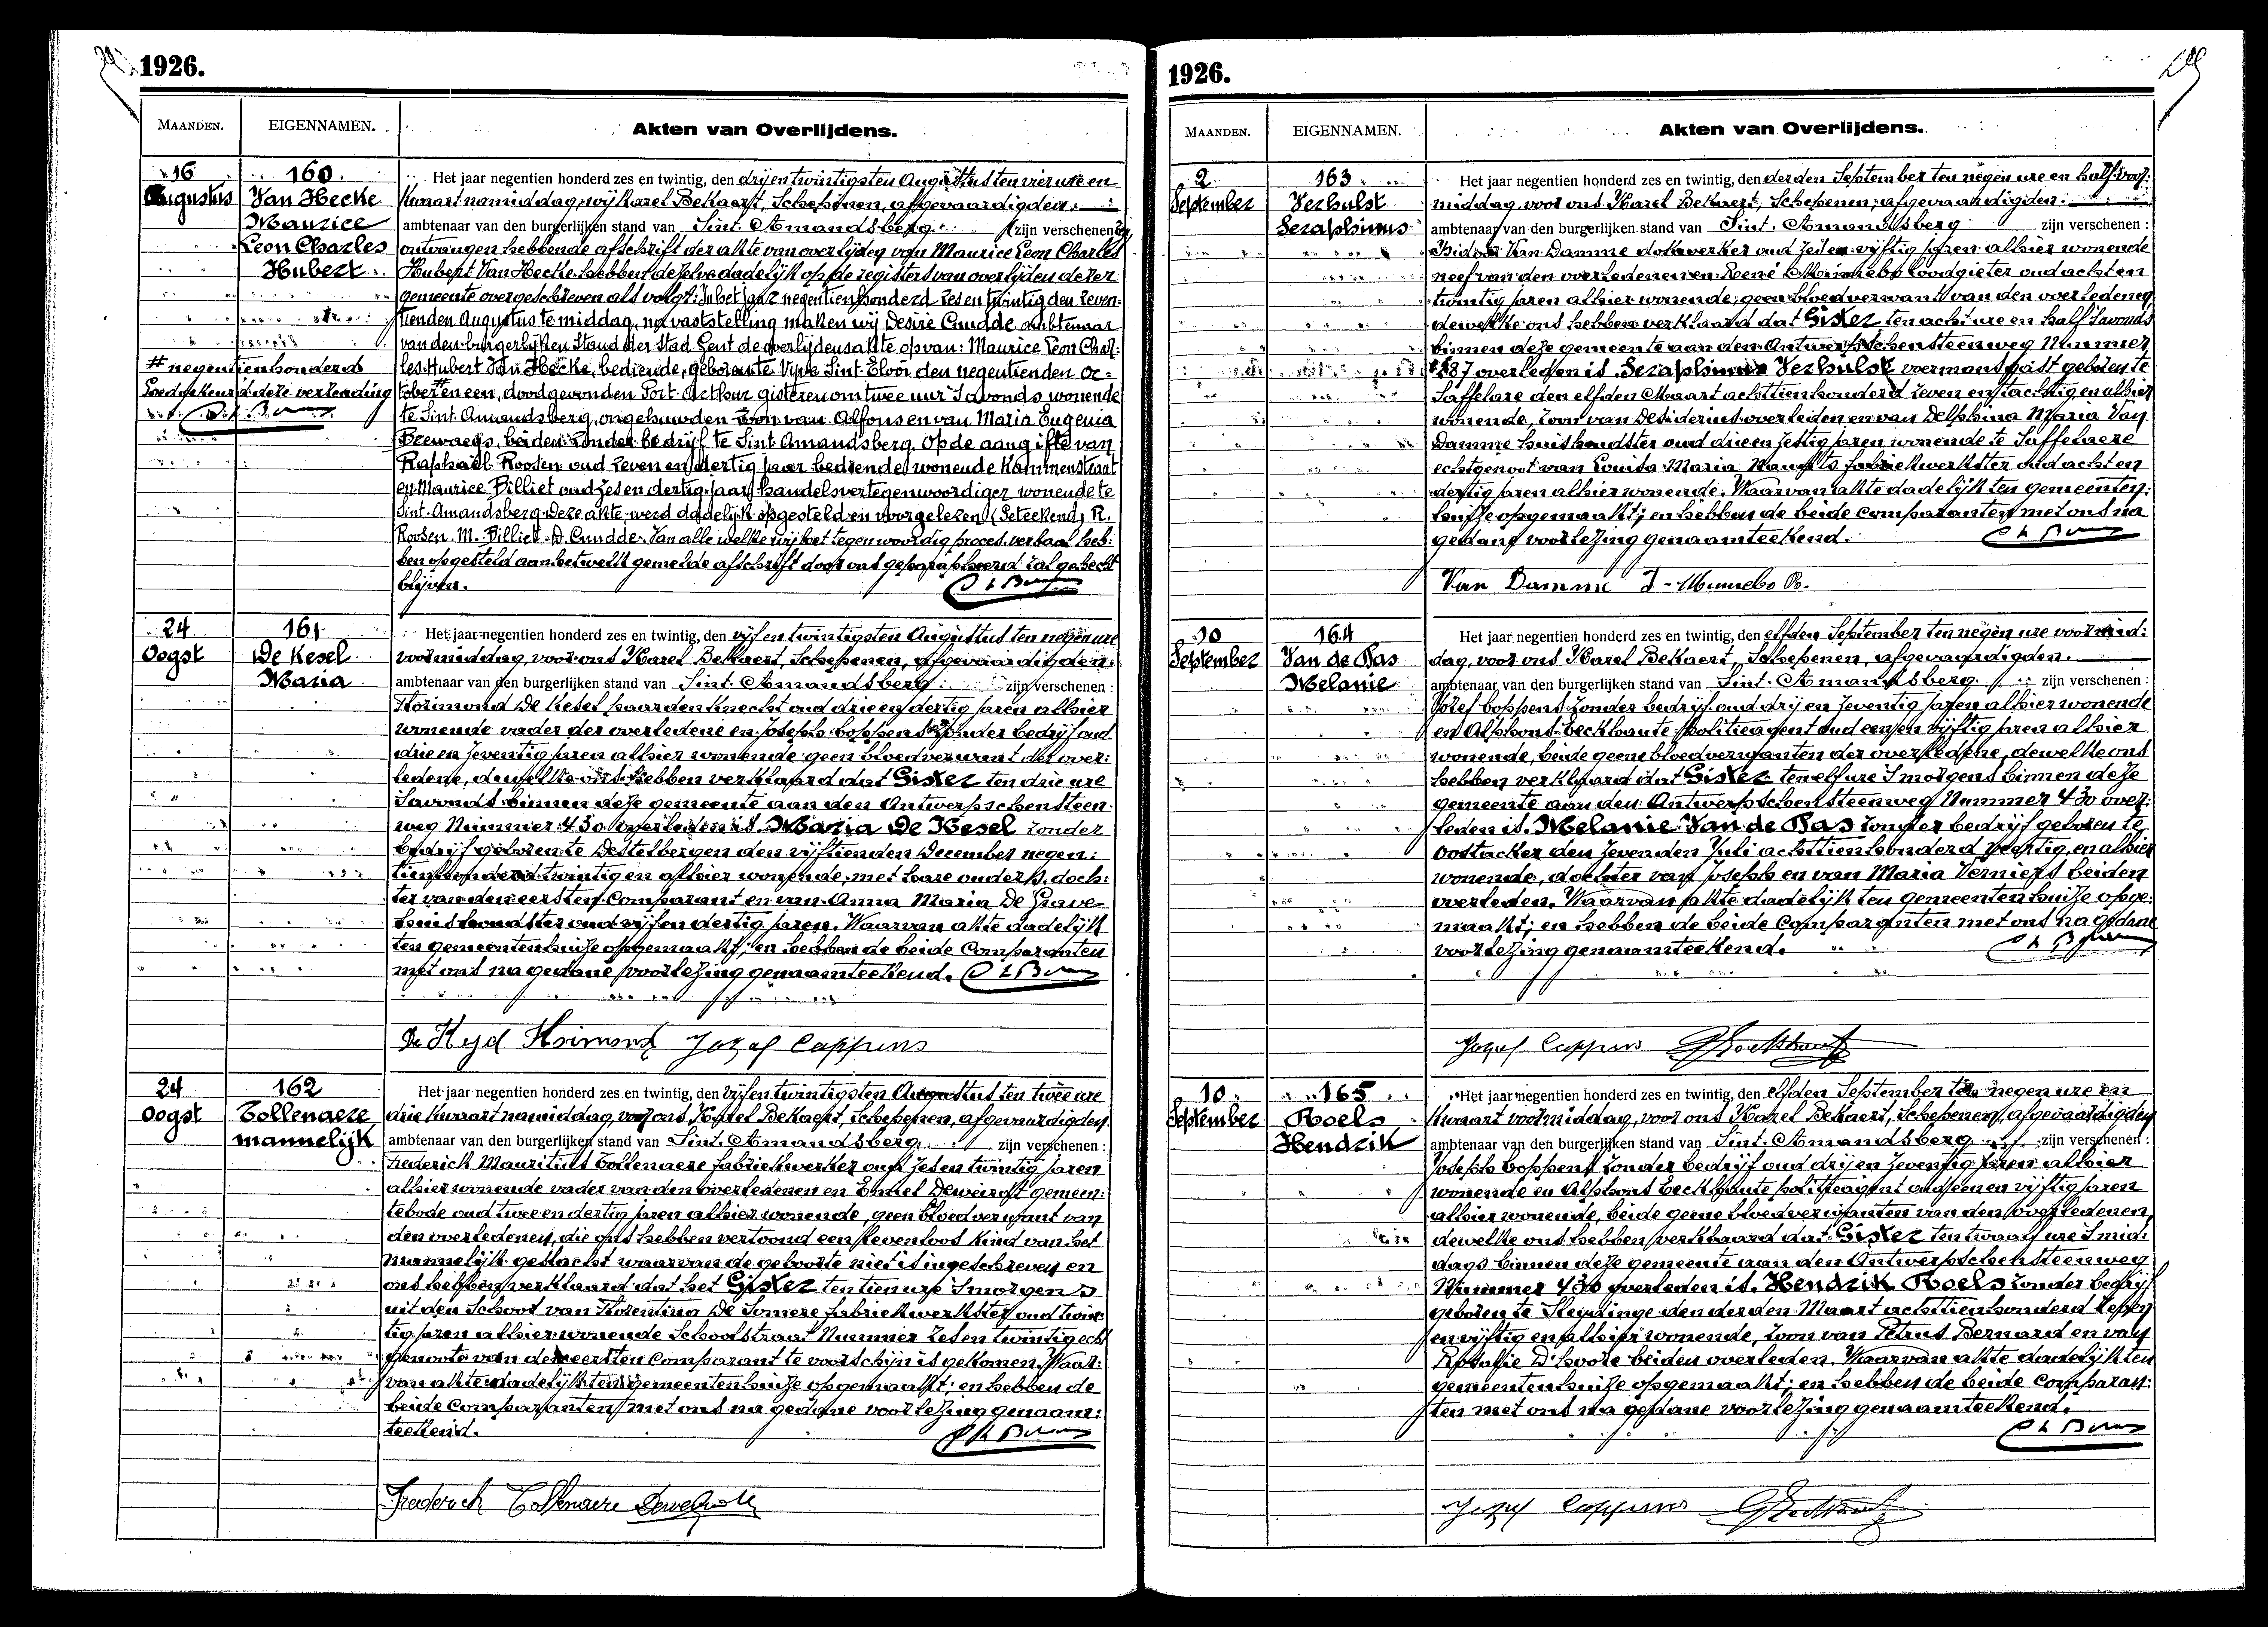 1926.
MAANDEN. EIGENNAMEN. Akten van Overlijdens.
16 Augustus
160 Van Hecke Maurice Leon Charles Hubert
# negentienhonderd
Goedgekeurd deze verzending
Het jaar negentien honderd zes en twintig, den drij en twintigsten Augustus ten vier ure en
kwaart namiddag, wij Karel Bekaert, Schepenen, afgevaardigden
ambtenaar van den burgerlijken stand van Sint. Amandsberg. zijn verschenen
ontvangen hebbende afschrift der akte van overlijden van Maurice Leon Charles
Hubert Van Hecke hebben dezelve dadelijk op de registers van overlijden dezer
gemeente overgeschreven als volgt: In het jaar negentienhonderd zes en twintig den zeven:
tienden Augustus te middag, na vaststelling maken wij Desiré Cnudde ambtenaar
van den burgerlijken Stand der Stad Gent de overlijdensakte op van: Maurice Léon Char:
les Hubert Van Hecke, bediende, geboren te Vyve Sint Elooi den negentienden Oc:
tober # en een, doodgevonden Port-Arthur gisteren om twee uur 's avonds wonende
te Sint Amandsberg, ongehuwden zoon van Alfons en van Maria Eugenia
beiden zonder bedrijf te Sint Amandsberg. Op de aangifte van
Raphaël Roosen oud zeven en dertig jaar bediende wonende Kammenstraat
en Maurice Billiet oud zes en dertig jaar handelsvertegenwoordiger wonende te
Sint-Amandsberg. Deze akte werd dadelijk opgesteld en voorgelezen (Geteekend) R.
Roosen. M. Billiet. D. Cnudde. Van alle welke wij het tegenwoordig proces-verbaal heb:
ben opgesteld aan hetwelk gemelde afschrift door ons geparapheerd zal gehecht
blijven.
24 Oogst
161 De Kesel Maria
Het jaar negentien honderd zes en twintig, den vijf en twintigsten Augustus ten negen ure
voormiddag, voor ons Karel Bekaert, Schepenen, afgevaardigden.
ambtenaar van den burgerlijken stand van Sint. Amandsberg. zijn verschenen:
Florimond De Kesel paardenknecht oud drie en dertig jaren alhier
wonende vader der overledene en Joseph Coppens zonder bedrijf oud
drie en zeventig jaren alhier wonende geen bloedverwant der over:
ledene, dewelke ons hebben verklaard dat Gister ten drie ure
's avonds binnen deze gemeente aan den Antwerpschensteen
weg Nummer 430 overleden is. Maria De Kesel zonder
bedrijf geboren te Destelbergen den vijftienden December negen:
tienhonderd twintig en alhier wonende, met hare ouders. doch:
ter van den eersten Comparant en van Anna Maria De Grave
huishoudster oud vijf en dertig jaren. Waarvan akte dadelijk
ten gemeentenhuize opgemaakt; en hebben de beide Comparanten
met ons na gedane voorlezing genaamteekend.
Jozef Coppens
24 Oogst
162 Tollenaere mannelijk
Het jaar negentien honderd zes en twintig, den vijf en twintigsten Augustus ten twee ure
drie kwaart namiddag, voor ons Karel Bekaert, Schepenen, afgevaardigden
ambtenaar van den burgerlijken stand van Sint. Amandsberg. zijn verschenen:
Frederick Mauritius Tollenaere fabriekwerker oud zes en twintig jaren
alhier wonende vader van den overledenen en Emiel Deweirdt gemeen:
tebode oud twee en dertig jaren alhier wonende, geen bloedverwant van
den overledenen, die ons hebben vertoond een levenloos kind van het
mannelijk geslacht waarvan de geboorte niet is ingeschreven en
ons hebben verklaard dat het Gister ten tien ure 's morgens
uit den Schoot van Florentina De Somere fabriekwerkster oud twin:
tig jaren alhier wonende Schoolstraat Nummer zes en twintig echt
genoote van den eersten Comparant te voorschijn is gekomen. Waar:
van akte dadelijk ten gemeentenhuize opgemaakt; en hebben de
beide Comparanten met ons na gedane voorlezing genaam:
teekend.
Frederick Tollenaere
1926.
MAANDEN. EIGENNAMEN. Akten van Overlijdens.
2 September
163 Verhulst Seraphinus
Het jaar negentien honderd zes en twintig, den derden September ten negen ure en half voor:
middag voor ons Karel Bekaert, Schepenen, afgevaardigden.
ambtenaar van den burgerlijken stand van Sint. Amandsberg zijn verschenen:
Van Damme dokwerker oud zes en vijftig jaren alhier wonende
neef van den overledenen en René Minnebo loodgieter oud acht en
twintig jaren alhier wonende, geen bloedverwant van den overledenen
dewelke ons hebben verklaard dat Gister ten acht ure en half 's avonds
binnen deze gemeente aan den Antwerpschensteenweg Nummer
overleden is. Seraphinus Verhulst voermansgast geboren te
Saffelare den elfden Maart achttienhonderd zeven en tachtig en alhier
wonende, zoon van Desiderius overleden en van Delphina Maria Van
Damme huishoudster oud drie en zestig jaren wonende te Saffelaere
echtgenoot van Louisa Maria fabriekwerkster oud acht en
dertig jaren alhier wonende. Waarvan akte dadelijk ten gemeenten:
huize opgemaakt; en hebben de beide Comparanten met ons na
gedane voorlezing genaamteekend.
Van Damme J - Minnebo R.
10 September
164 Van de Pas Melanie
Het jaar negentien honderd zes en twintig, den elfden September ten negen ure voormid:
dag, voor ons Karel Bekaert, Schepenen, afgevaardigden.
ambtenaar van den burgerlijken stand van Sint. Amandsberg. zijn verschenen:
Jozef Coppens zonder bedrijf oud drij en zeventig jaren alhier wonende
en Alphons Eeckhaute politieagent oud een en vijftig jaren alhier
wonende, beide geene bloedverwanten der overledene, dewelke ons
hebben verklaard dat Gister ten elf ure 's morgens binnen deze
gemeente aan den Antwerpschensteenweg Nummer 430 over:
leden is. Melanie Van de Pas zonder bedrijf geboren te
Oostacker den zevenden Juli achttienhonderd en alhier
wonende, dochter van Joseph en van Maria Verniers beiden
overleden. Waarvan akte dadelijk ten gemeentenhuize opge:
maakt; en hebben de beide Comparanten met ons na gedane
voorlezing genaamteekend.
Jozef Coppens
10 September
165 Roels Hendrik
Het jaar negentien honderd zes en twintig, den elfden September ten negen ure en
kwaart voormiddag, voor ons Karel Bekaert, Schepenen, afgevaardigden
ambtenaar van den burgerlijken stand van Sint. Amandsberg zijn verschenen:
Joseph Coppens zonder bedrijf oud drij en zeventig jaren alhier
wonende en Alphons Eeckhaute politieagent oud een en vijftig jaren
alhier wonende, beide geene bloedverwanten van den overledenen,
dewelke ons hebben verklaard dat Gister ten twaalf ure 's mid:
dags binnen deze gemeente aan den Antwerpschensteenweg
Nummer 430 overleden is. Hendrik Roels zonder bedrijf
geboren te Sleydinge den derden Maart achttienhonderd zeven
en vijftig en alhier wonende, zoon van Petrus Bernard en van
Rosalie D'hoore beiden overleden. Waarvan akte dadelijk ten
gemeentenhuize opgemaakt; en hebben de beide Comparan:
ten met ons na gedane voorlezing genaamteekend.
Jozef Coppens